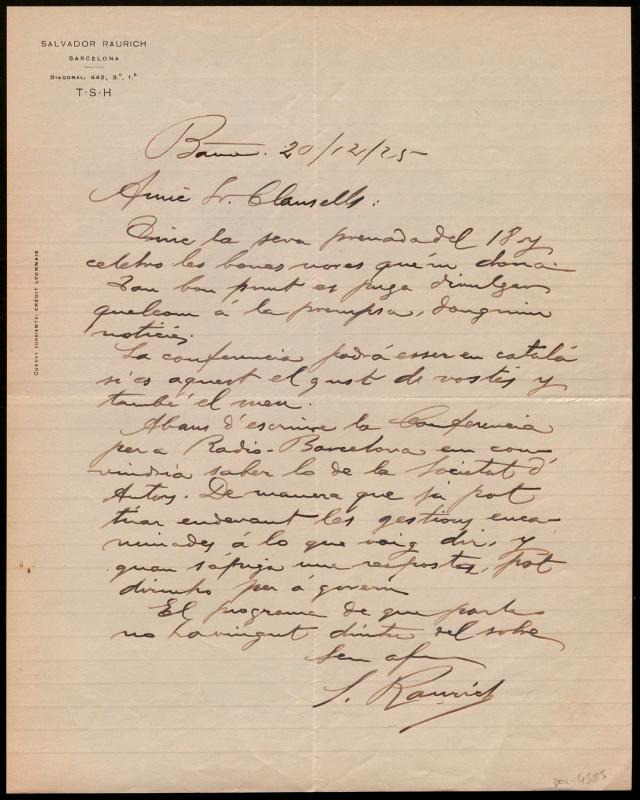 SALVADOR RAURICH
BARCELONA
DIAGONAL: 442, 3.º, 1.ª
T·S·H
CUENTA CORRIENTE: CRÉDIT LYONNAIS
Barna. 20/12/25
Amic Sr. Clausells:
Tinc la seva preuada del 18 y
celebro les bones noves que'm dona.
Tan bon punt es puga divulgar
quelcom á la prempsa, donguim
noticies.
La conferencia podrá esser en catalá
si es aquest el gust de vostés y
també el meu.
Abans d'escriure la Conferencia
per a Radio-Barcelona em con-
vindria saber lo de la Societat d'
Autors. De manera que ja pot
tirar endevant les gestions enca-
minades á lo que vaig dir, y
quan sápiga una resposta, pot
dirmho per á govern
El programa de que parla
no ha vingut dintre del sobre
Seu afm
S. Raurich
DOC-4585